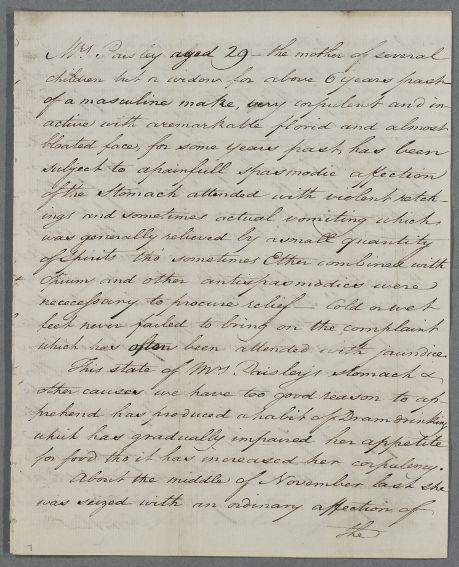 Mrs. Paisley aged 29 – the mother of several
children but a widow for above 6 years past
of a masculine make, very corpulent and in
active with a remarkable florid and almost
bloated face, for some years past, has been
subject to a painfull spasmodic affection
of the Stomach attended with violent retch-
ings and sometimes actual vomiting which
was generally relieved by a small quantity
of Spirits tho sometimes Ether combined with
Opium and other antispasmodics were
nececessary to procure relief – Cold or wet
feet never failed to bring on the complaint
which has often been attended with jaundice.
This state of Mrs Paisley's stomach &
other causes we have too good reason to ap-
prehend has produced a habit of Dram drinking
which has gradually impaired her appetite
for food tho it has increased her corpulency.
About the middle of November last she
was seized with an ordinary affection of
the
7